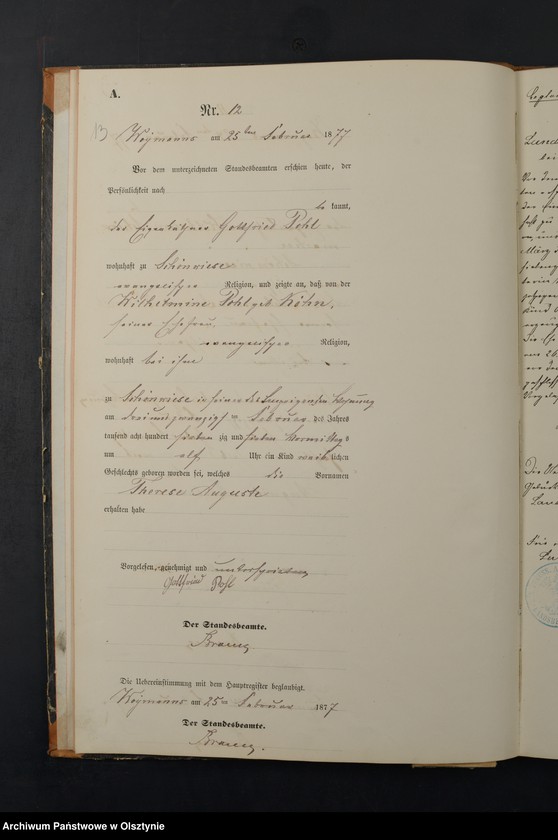 A.
Nr. 12
13
Weymanns am 25ten Februar 1877
Vor dem unterzeichneten Standesbeamten erschien heute, der
Persönlichkeit nach
be kannt,
der Eigenkäthner Gottfried Pohl
wohnhaft zu Schönwiese
evangelischer Religion, und zeigte an, daß von der
Wilhelmine Pohl geb. Köhn,
seiner Ehefrau
evangelischer Religion,
wohnhaft bei ihm
zu Schönwiese in seiner des Wohnung
am drei und zwanzigsten Februar des Jahres
tausend acht hundert sieben zig und sieben Vormittags
um elf Uhr ein Kind weib lichen
Geschlechts geboren worden sei, welches die Vornamen
Therese Auguste
erhalten habe
Vorgelesen, genehmigt und unterschrieben
Gottfried Pohl
Der Standesbeamte.
Die Uebereinstimmung mit dem Hauptregister beglaubigt.
Weymanns am 25ten Februar 1877
Der Standesbeamte.
Archiwum Państwowe w Olsztynie